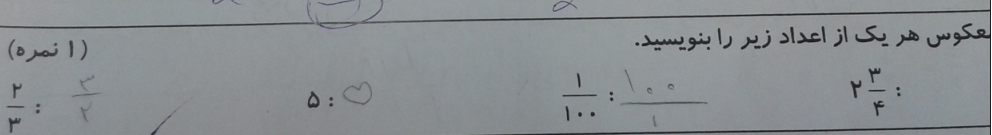 معکوس هر یک از اعداد زیر را بنویسید. (۱ نمره)
۲ ۳/۴ : ۱/۱۰۰ : ۱۰۰/۱ ۵ : ♡ ۲/۳ : ۳/۲